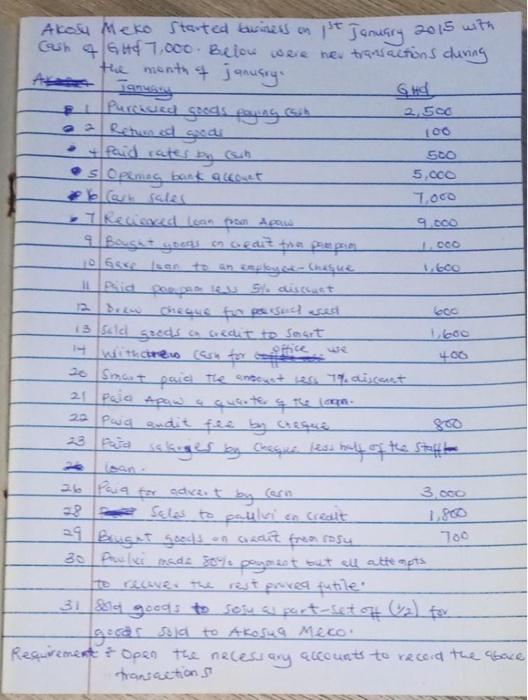 Akosu Meko Started business on 1st January 2015 with
Cash of GH₵7,000. Below were her transactions during
the month of january.
January GH₵
1 Purchased goods paying cash 2,500
2 Returned goods 100
4 Paid rates by cash 500
5 Opening bank account 5,000
6 Cash Sales 7,000
7 Recieved loan from Apaw 9,000
9 Bought goods on credit from pampam 1,000
10 Gave loan to an employee-cheque 1,600
11 Paid pampam less 5% discount
12 Drew cheque for personal used 600
13 Sold goods on credit to Smart 1,600
14 Withdrew cash for office use 400
20 Smart paid the amount less 7% discount
21 Paid Apaw a quarter of the loan.
22 Paid audit fee by cheque 800
23 Paid salaries by cheque less half of the staff
loan.
26 Paid for advert by cash 3,000
28 Sales to paulvi on credit 1,800
29 Bought goods on credit from sosu 700
30 Paulvi made 80% payment but all attempts
to recover the rest proved futile.
31 Sold goods to sosu as part-set off (1/2) for
goods sold to Akosua Meko.
Requirement : Open the necessary accounts to record the above
transactions